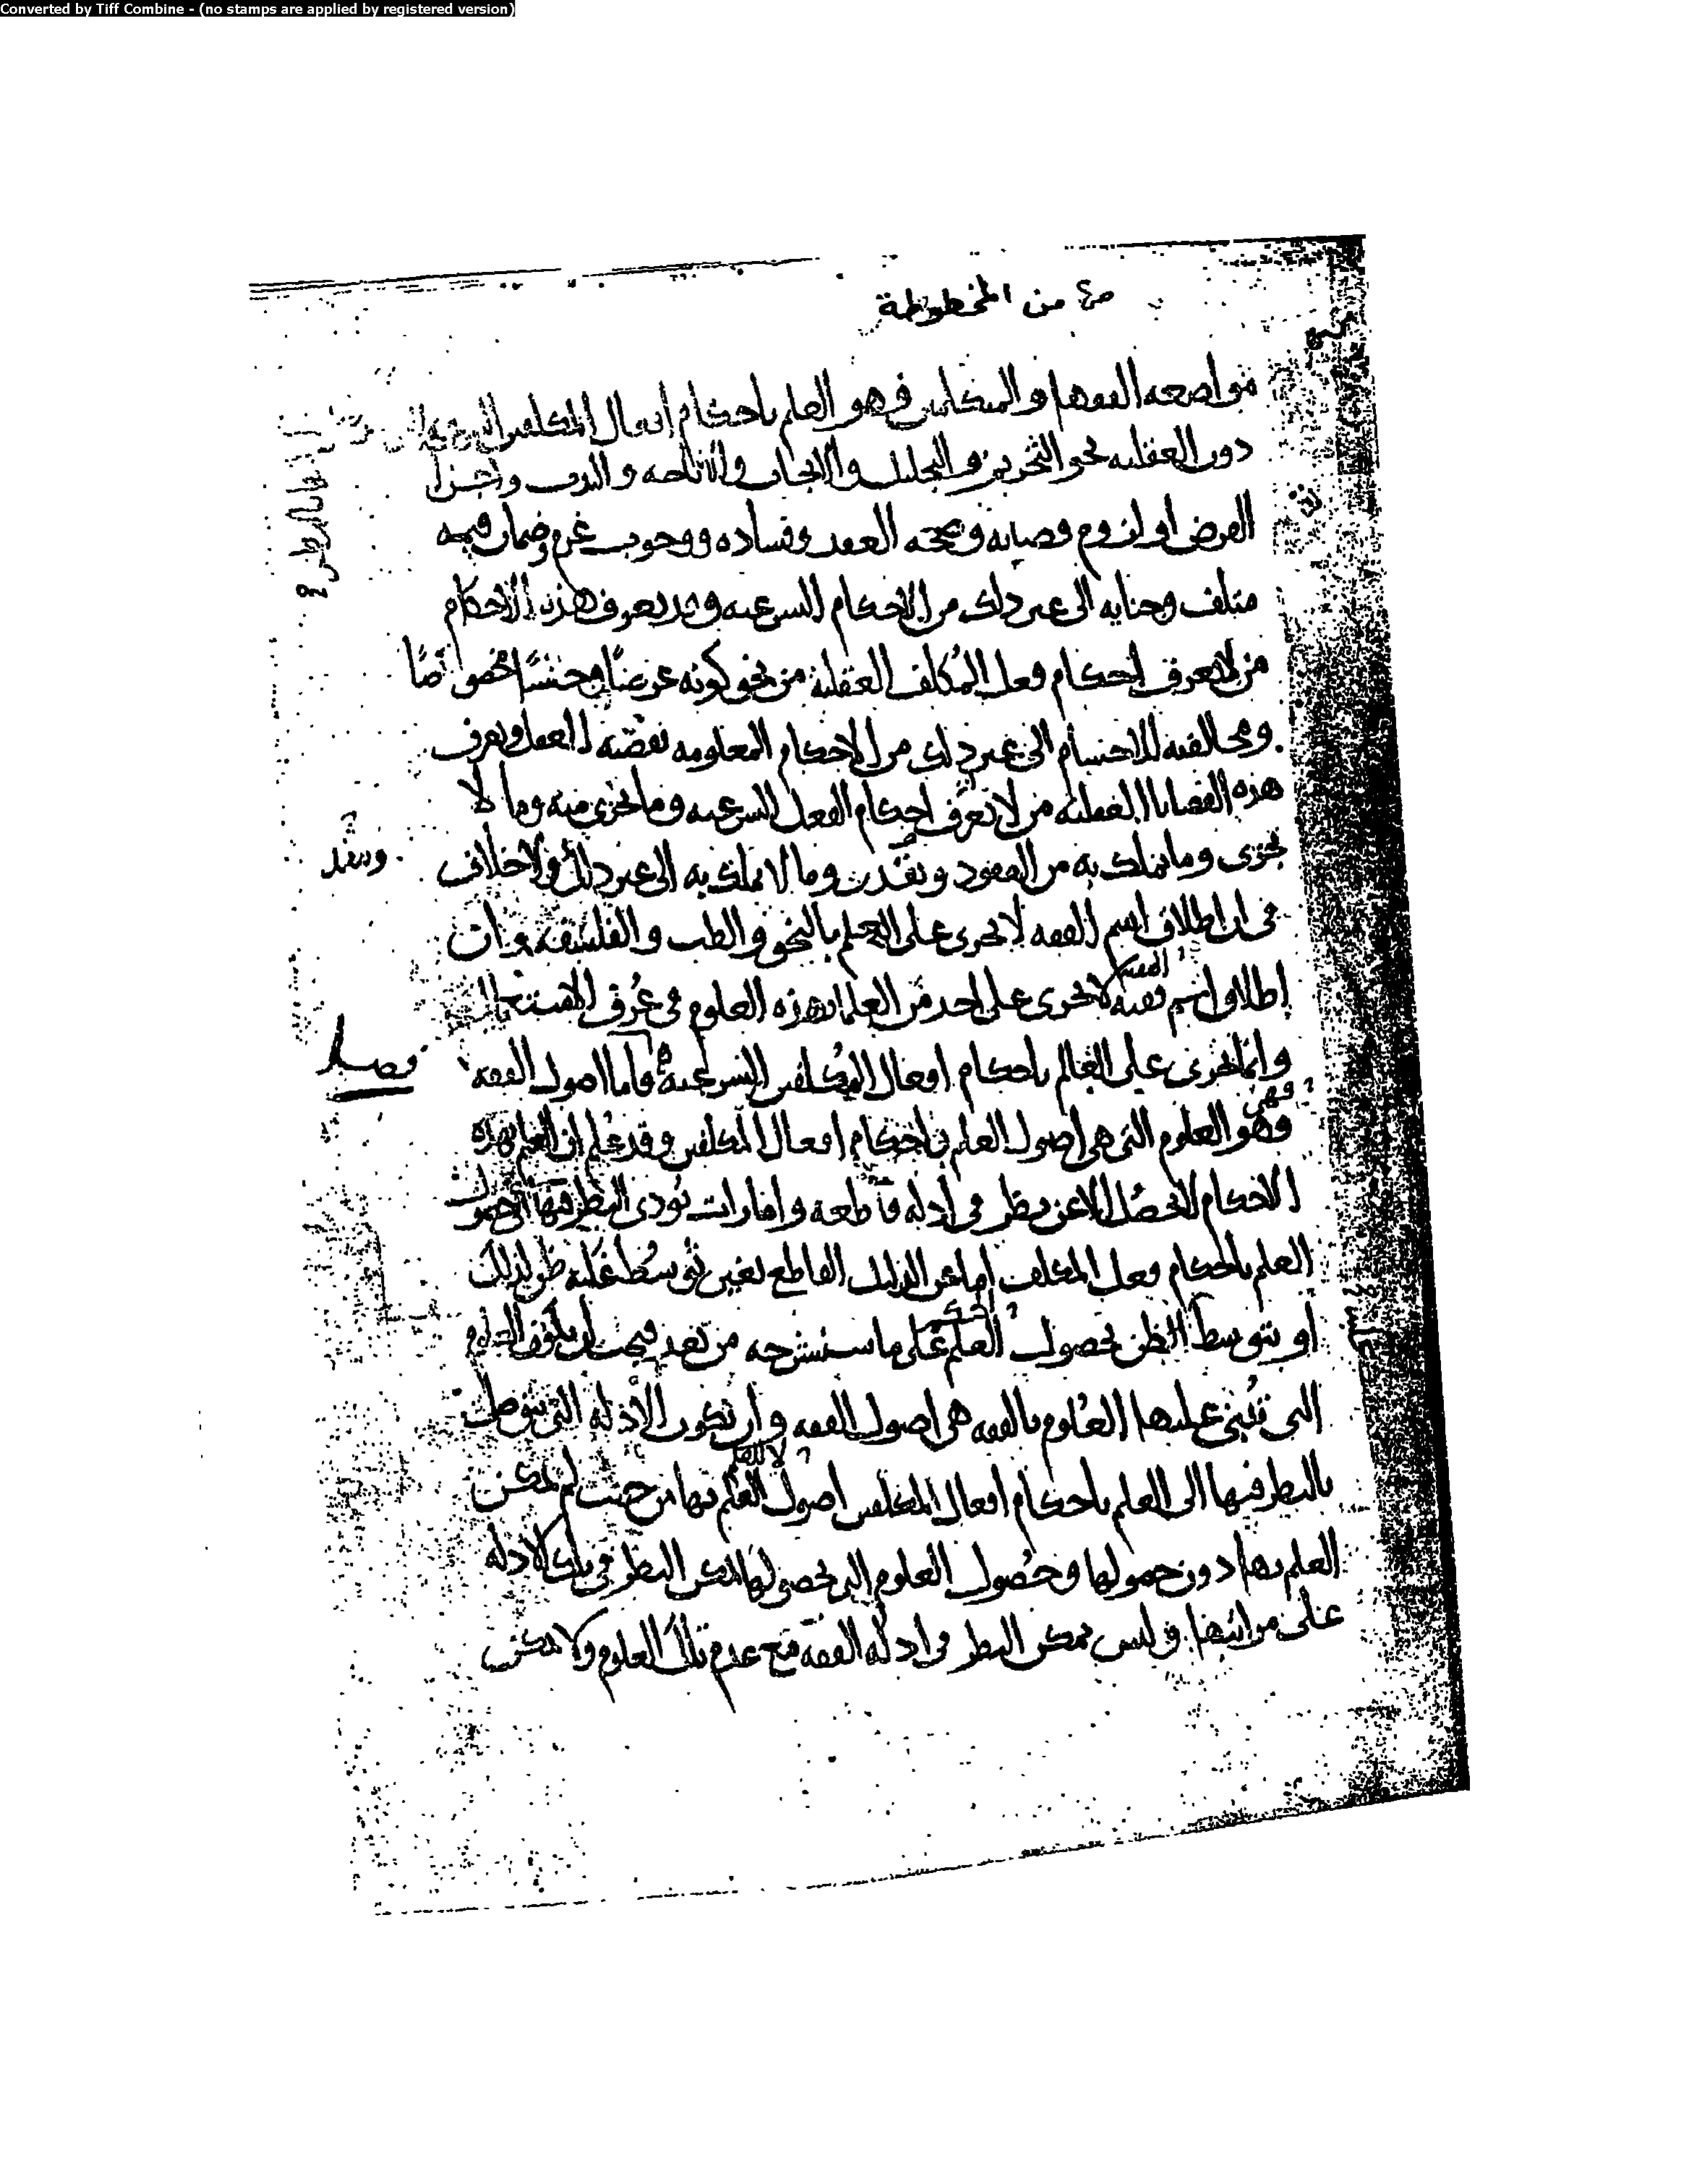 Converted by Tiff Combine - (no stamps are applied by registered version)
ص٤ من المخطوطة
مواضعه الفقها والمتكلمين فهو العلم باحكام افعال المكلفين الشرعية
دون العقليه نحو التحريم والتحليل والايجاب والاباحه والندب واجزا
الفرض او لزوم قضايه وصحه العقد وفساده ووجوب غرم وضمان قيمه
متلف وجنايه الى غير ذلك من الاحكام الشرعيه وقد يعرف هذه الاحكام
من لا يعرف احكام فعل المكلف العقلية من نحو كونه عرضًا وجنسًا مخصوصًا
ومخالفته للاجسام الى غير ذلك من الاحكام المعلومه بقضية العقل ويعرف
هذه القضايا العقلية من لا يعرف احكام الفعل الشرعيه وما يجزى منه وما لا
يجزى وما يملك به من العقود وما لا يملك به الى غير ذلك ولا خلاف
وينفذ
فى ان اطلاق اسم الفقه لا يجرى على العلم بالنحو والطب والفلسفة وان
اطلاق اسم فقيه لا يجرى على احد من العلما بهذه العلوم فى عرف الاستعمال
وانما يجرى على العالم باحكام افعال المكلفين الشرعية واما اصول الفقه
فصل
فهى
وهو العلوم التى هى اصول العلم باحكام افعال المكلفين وقد علم ان العلم بهذه
الاحكام لا يحصل الا عن نظر فى ادله قاطعة وامارات يودى النظر فيها الى حصول
العلم باحكام فعل المكلف اما عن الدليل القاطع بغير توسط غلبة ظن لذلك
او بتوسط الظن بحصول العلم على ما سنشرحه من بعد فيجب ان يكون العلوم
الحكم
التى تبنى عليها العلوم بالفقه هى اصول الفقه وان تكون الادلة التى يتوصل
بالنظر فيها الى العلم باحكام افعال المكلفين اصول العلم بها من حيث لم يمكن
العلم بها دون حصولها وحصول العلوم التى بحصولها يمكن النظر فى تلك الادله
على مراتبها وليس يمكن النظر فى ادلة الفقه مع عدم تلك العلوم ولا يمكن